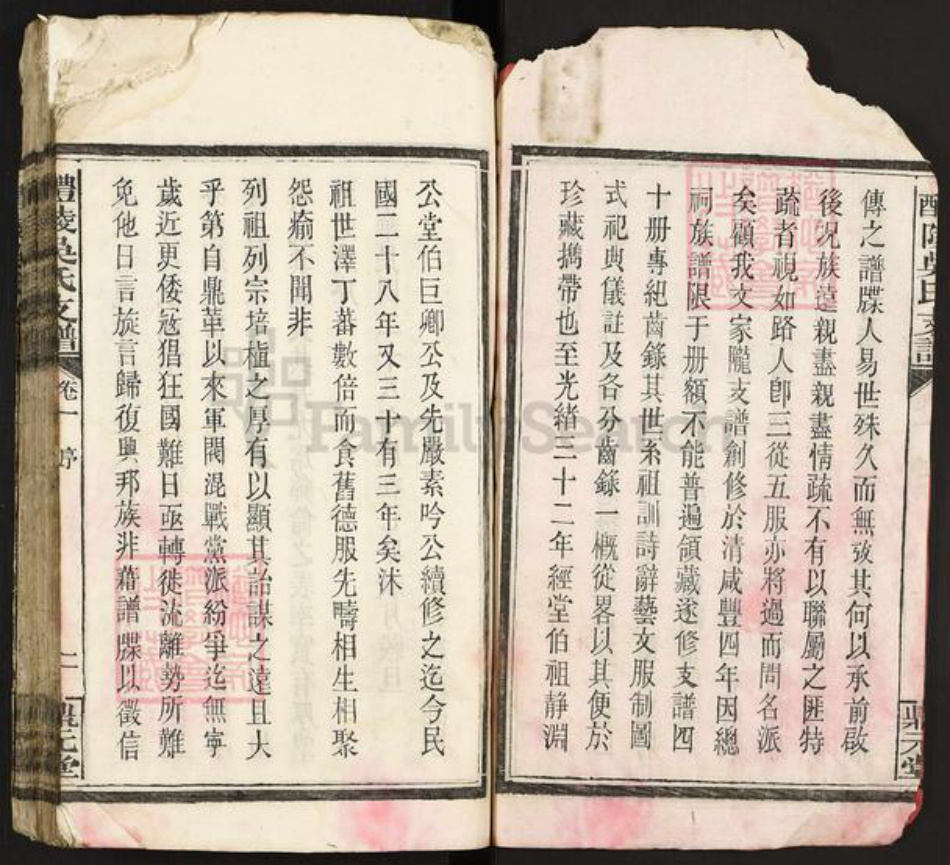 傳之譜牒人易世殊久而無攷其何以承前啟
後况族遠親盡親盡情疏不有以聯屬之匪特
疏者視如路人卽三從五服亦將過而問名派
矣顧我文家隴支譜創修於清咸豐四年因總
祠族譜限于册額不能普遍領藏遂修支譜四
十册專紀齒錄其世系祖訓詩辭藝文服制圖
式祀典儀註及各分齒錄一概從畧以其便於
珍藏攜帶也至光緒三十二年經堂伯祖静淵
公堂伯巨卿公及先嚴素吟公續修之迄今民
國二十八年又三十有三年矣沐
祖世澤丁蕃數倍而食舊德服先疇相生相聚
怨瘉不聞非
列祖列宗培植之厚有以顯其詒謀之遠且大
乎第自鼎革以來軍閥混戰黨派紛爭迄無寧
歲近更倭寇猖狂國難日亟轉徙流離勢所難
免他日言旋言歸復興邦族非藉譜牒以徵信
醴陵吳氏支譜
卷一
序
二
鼎元堂
FamilySearch